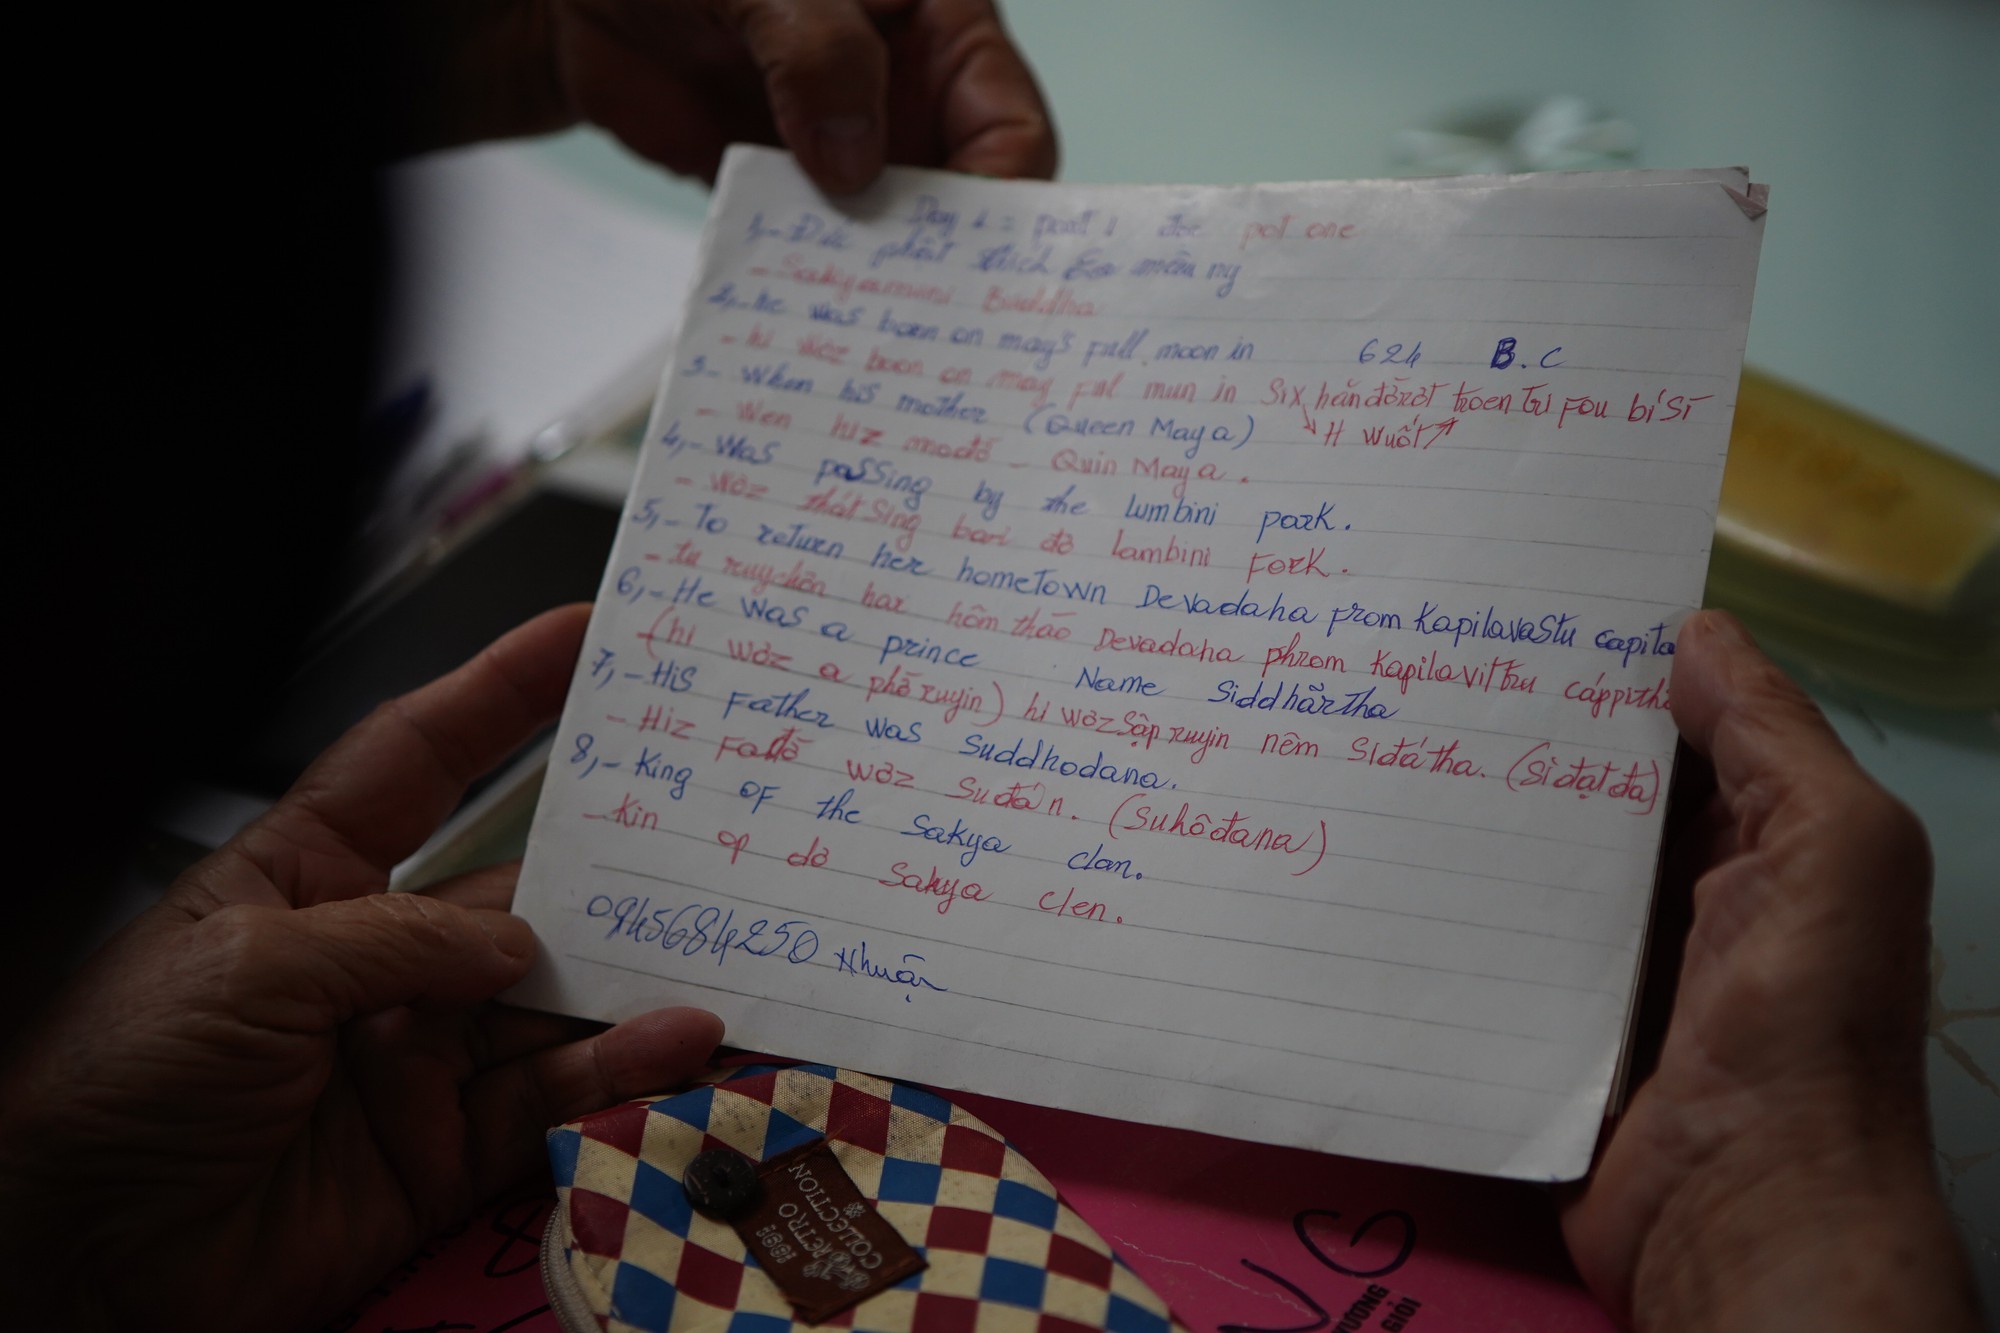 Day 1 = part 1 đọc pat one
1,- Đức phật thích ca mâu ny
- Sakyamuni Buddha
2,- he was born on may's full moon in 624 B.C
- hi wơz boon on may ful mun in Six hăn đờrơt troen tri Fou bí Sí
H Wuốt
3- When his mother (Queen Maya)
- Wen hiz mađờ - Quin Maya.
4,- Was passing by the lumbini park.
- wơz thátsing bari đờ lambini Fork.
5,- To return her homeTown Devadaha from Kapilavastu capita
- tu ruychơn har hôm tháo Devadaha phrom Kapilavittru cáppitha
6,- He was a prince Name Siddhãrtha
- (hi wơz a phờ ruyin) hi wơz sập ruyin nêm Siđátha. (Si đạt đa)
7,- His Father was Suddhodana.
- Hiz Fađờ wơz Suđán. (Suhôđana)
8,- King OF the Sakya clan.
- Kin op đờ Sakya Clen.
0945684250 Nhuận
1991
RETRO
COLLECTION
VG
8
VƯƠNG
GIỎI